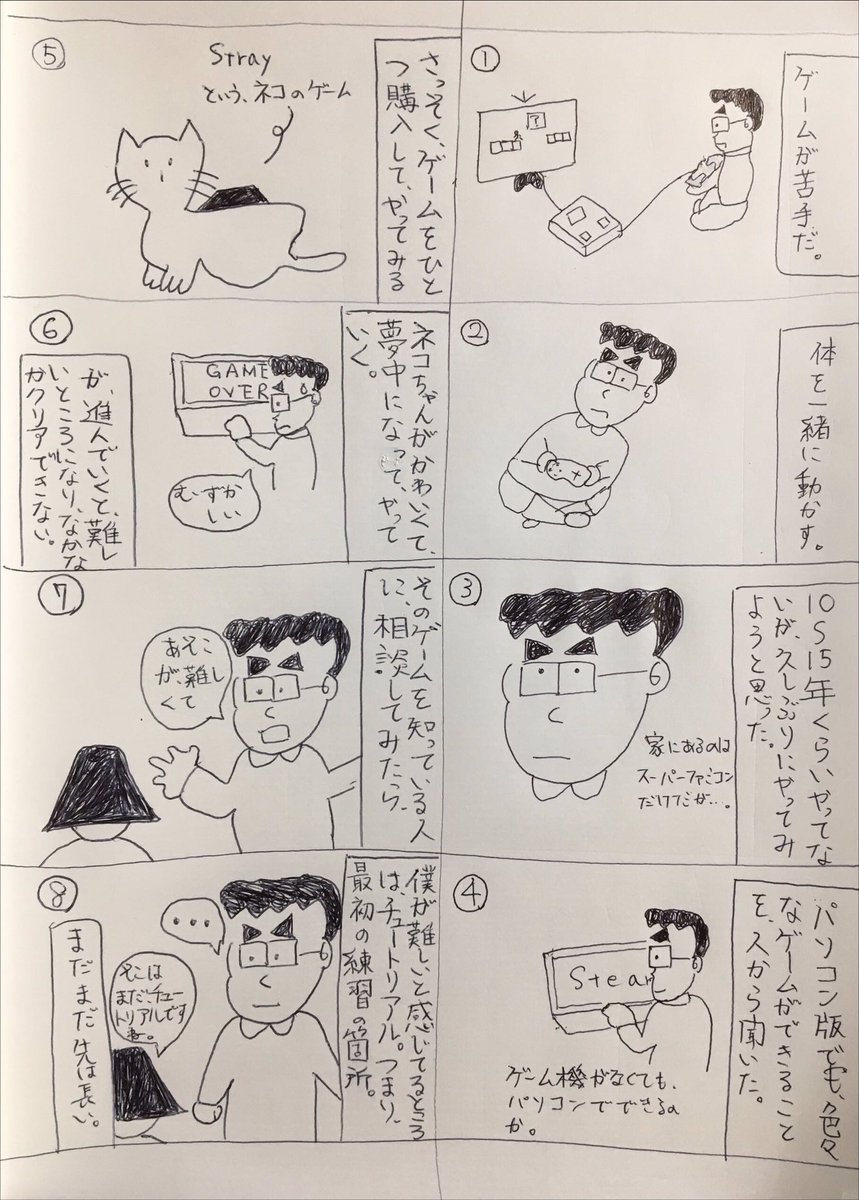 ①
ゲームが苦手だ。
②
体を一緒に動かす。
③
10〜15年くらいやってな
いが、久しぶりにやってみ
ようと思った。
家にあるのは
スーパーファミコン
だけだが…。
④
パソコン版でも、色々
なゲームができること
を、人から聞いた。
Steam
ゲーム機がなくても、
パソコンでできるの
か。
⑤
さっそく、ゲームをひと
つ購入して、やってみる
Stray
という、ネコのゲーム
⑥
ネコちゃんがかわいくて、
夢中になって、やって
いく。
GAME
OVER
むずか
しい
が、進んでいくと、難し
いところになり、なかな
かクリアできない。
⑦
そのゲームを知っている人
に、相談してみたら、
あそこ
が、難し
くて
⑧
僕が難しいと感じてるところ
は、チュートリアル。つまり、
最初の練習の箇所。
・・・
そこは
まだ、チュー
トリアルです
ね。
まだまだ先は長い。